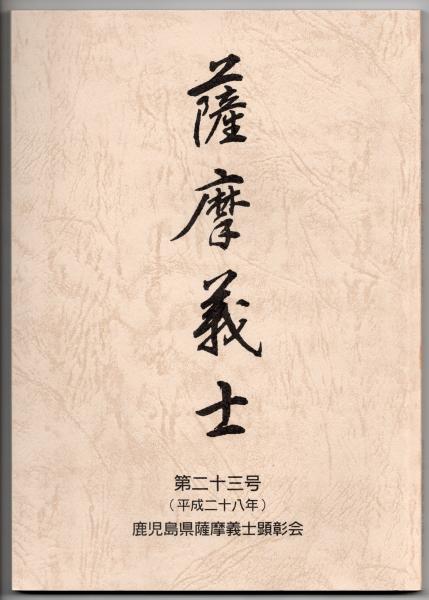 薩摩義士
第二十三号
（平成二十八年）
鹿児島県薩摩義士顕彰会